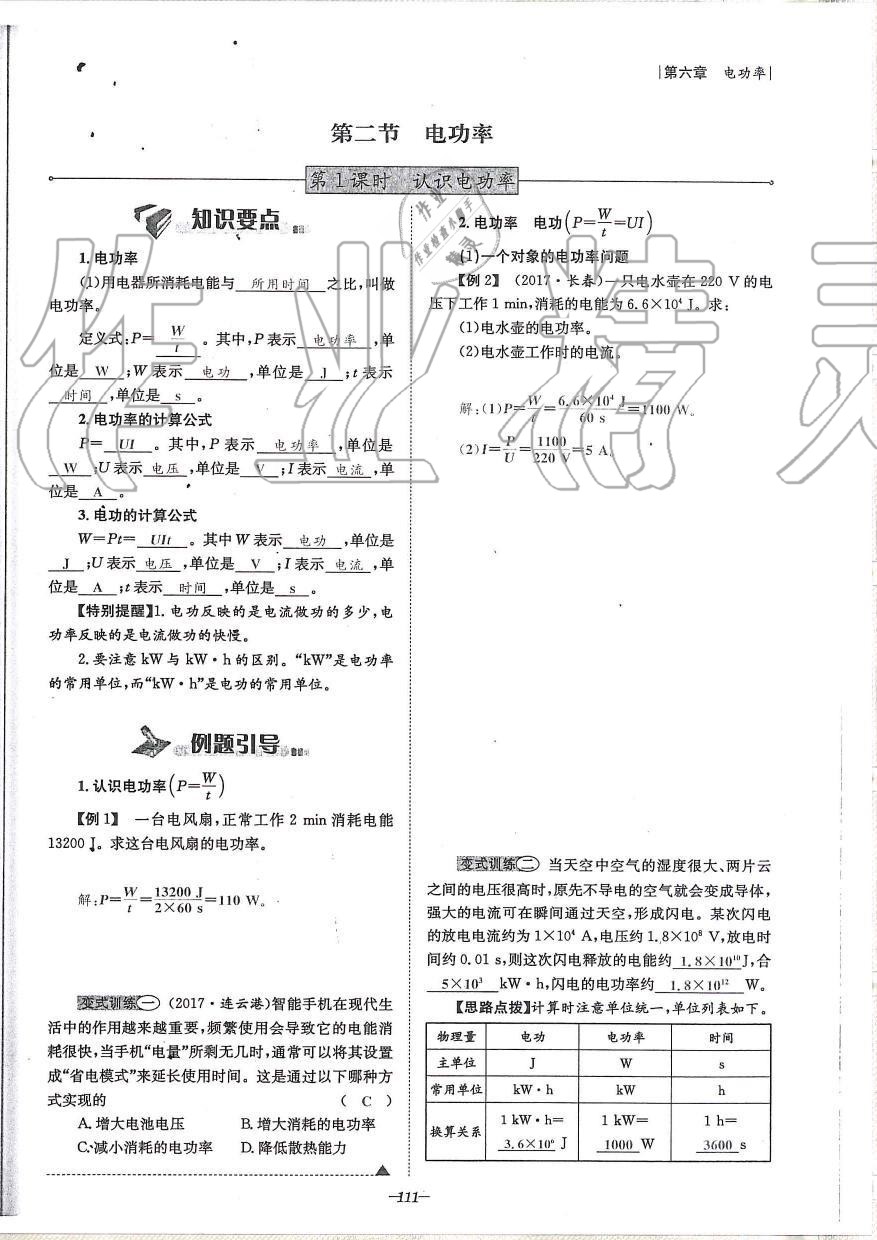 |第六章　电功率|
第二节　电功率
第1课时　认识电功率
知识要点
1. 电功率
(1)用电器所消耗电能与 所用时间 之比,叫做
电功率。
定义式:P= W/t 。其中,P表示 电功率 ,单
位是 W ;W表示 电功 ,单位是 J ;t表示
时间 ,单位是 s 。
2. 电功率的计算公式
P= UI 。其中,P表示 电功率 ,单位是
W ;U表示 电压 ,单位是 V ;I表示 电流 ,单
位是 A 。
3. 电功的计算公式
W=Pt= UIt 。其中W表示 电功 ,单位是
J ;U表示 电压 ,单位是 V ;I表示 电流 ,单
位是 A ;t表示 时间 ,单位是 s 。
【特别提醒】1. 电功反映的是电流做功的多少,电
功率反映的是电流做功的快慢。
2. 要注意kW与kW·h的区别。“kW”是电功率
的常用单位,而“kW·h”是电功的常用单位。
例题引导
1. 认识电功率(P=W/t)
【例1】 一台电风扇,正常工作2 min消耗电能
13200 J。求这台电风扇的电功率。
解:P=W/t=13200 J/2×60 s=110 W。
变式训练一 (2017·连云港)智能手机在现代生
活中的作用越来越重要,频繁使用会导致它的电能消
耗很快,当手机“电量”所剩无几时,通常可以将其设置
成“省电模式”来延长使用时间。这是通过以下哪种方
式实现的 ( C )
A. 增大电池电压 B. 增大消耗的电功率
C. 减小消耗的电功率 D. 降低散热能力
2. 电功率　电功(P=W/t=UI)
(1)一个对象的电功率问题
【例2】 (2017·长春)一只电水壶在220 V的电
压下工作1 min,消耗的电能为6.6×10⁴ J。求:
(1)电水壶的电功率。
(2)电水壶工作时的电流。
解:(1)P=W/t=6.6×10⁴ J/60 s=1100 W。
(2)I=P/U=1100/220 V=5 A。
变式训练二 当天空中空气的湿度很大、两片云
之间的电压很高时,原先不导电的空气就会变成导体,
强大的电流可在瞬间通过天空,形成闪电。某次闪电
的放电电流约为1×10⁴ A,电压约1.8×10⁸ V,放电时
间约0.01 s,则这次闪电释放的电能约 1.8×10¹⁰ J,合
5×10³ kW·h,闪电的电功率约 1.8×10¹² W。
【思路点拨】计算时注意单位统一,单位列表如下。
物理量 电功 电功率 时间
主单位 J W s
常用单位 kW·h kW h
换算关系 1 kW·h= 3.6×10⁶ J 1 kW= 1000 W 1 h= 3600 s
—111—
作业精灵